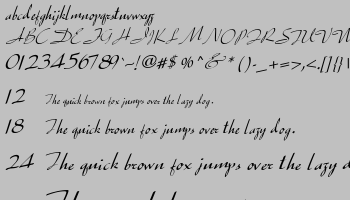 abcdefghijklmnopqrstuvwxyz
ABCDEFGHIJKLMNOPQRSTUVW
0123456789`~!@#$%^&*()-_+=>,<.[]{}\
12 The quick brown fox jumps over the lazy dog.
18 The quick brown fox jumps over the lazy dog.
24 The quick brown fox jumps over the lazy d